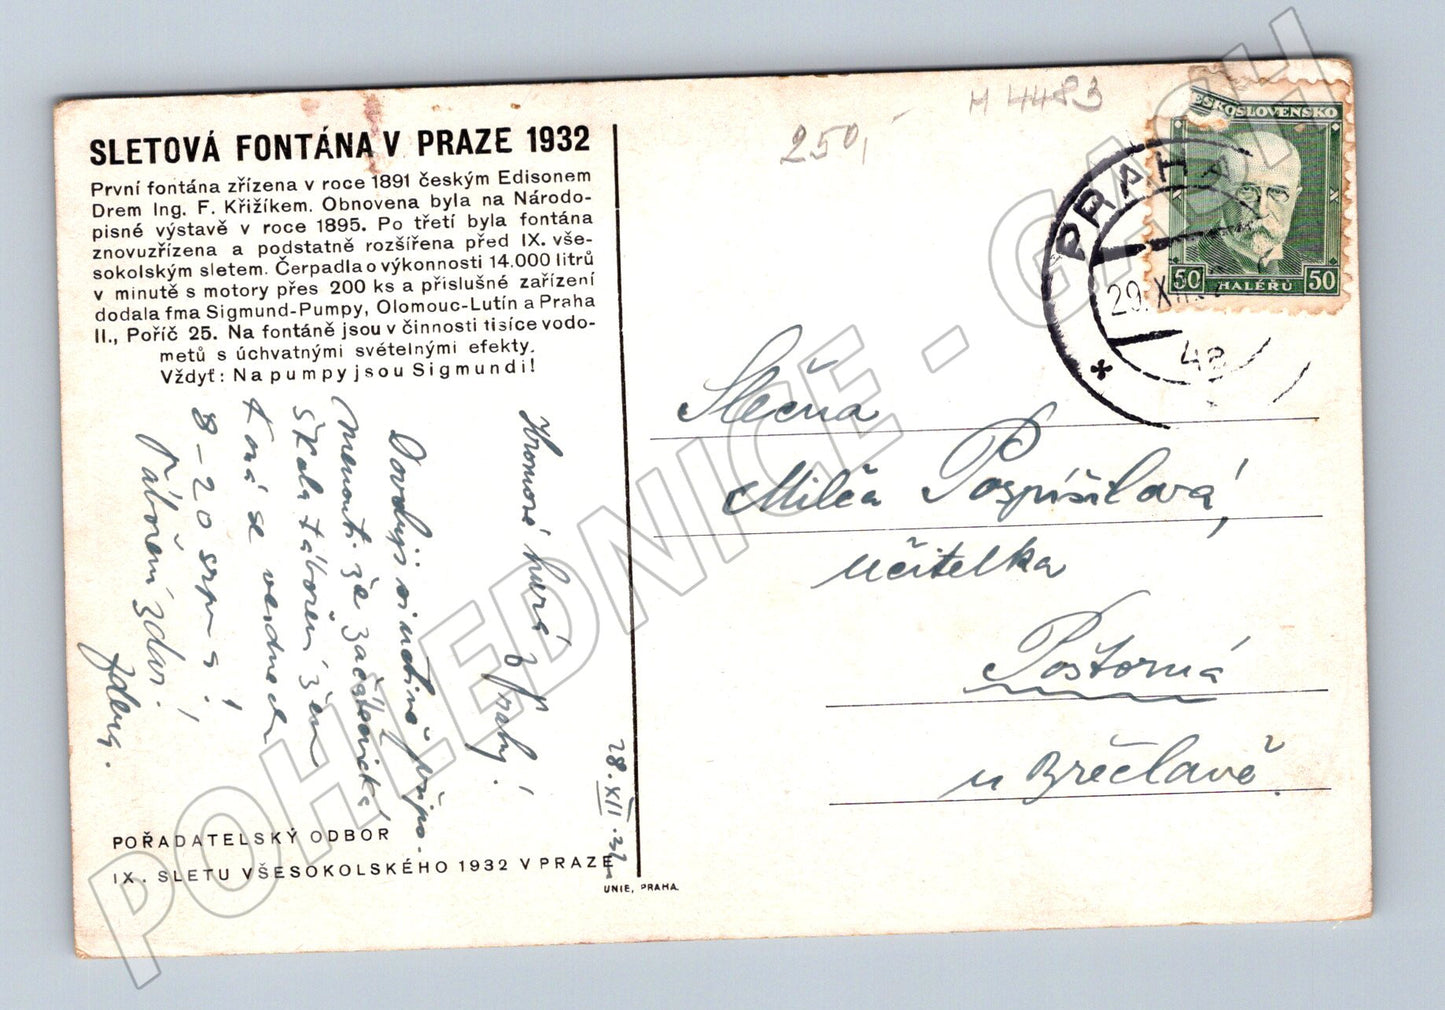 SLETOVÁ FONTÁNA V PRAZE 1932
První fontána zřízena v roce 1891 českým Edisonem
Drem Ing. F. Křižíkem. Obnovena byla na Národo-
pisné výstavě v roce 1895. Po třetí byla fontána
znovuzřízena a podstatně rozšířena před IX. vše-
sokolským sletem. Čerpadla o výkonnosti 14.000 litrů
v minutě s motory přes 200 ks a příslušné zařízení
dodala fma Sigmund-Pumpy, Olomouc-Lutín a Praha
II., Poříč 25. Na fontáně jsou v činnosti tisíce vodo-
metů s úchvatnými světelnými efekty.
Vždyť: Na pumpy jsou Sigmundi!
Hromové hurá
z Prahy!
Dovoluji si uctivě připo-
menouti, že začátečnická
škola táboření žen
koná se
8-20 srpna!
Táboření zdar!
28.XII.32
POŘADATELSKÝ ODBOR
IX. SLETU VŠESOKOLSKÉHO 1932 V PRAZE
UNIE, PRAHA.
250,-
H 4483
ČESKOSLOVENSKO
50 HALÉRŮ 50
PRAHA
29.XII.
48
Slečna
Milča Pospíšilová,
učitelka
Poštorná
u Břeclavě.
POHLEDNICE - GASH